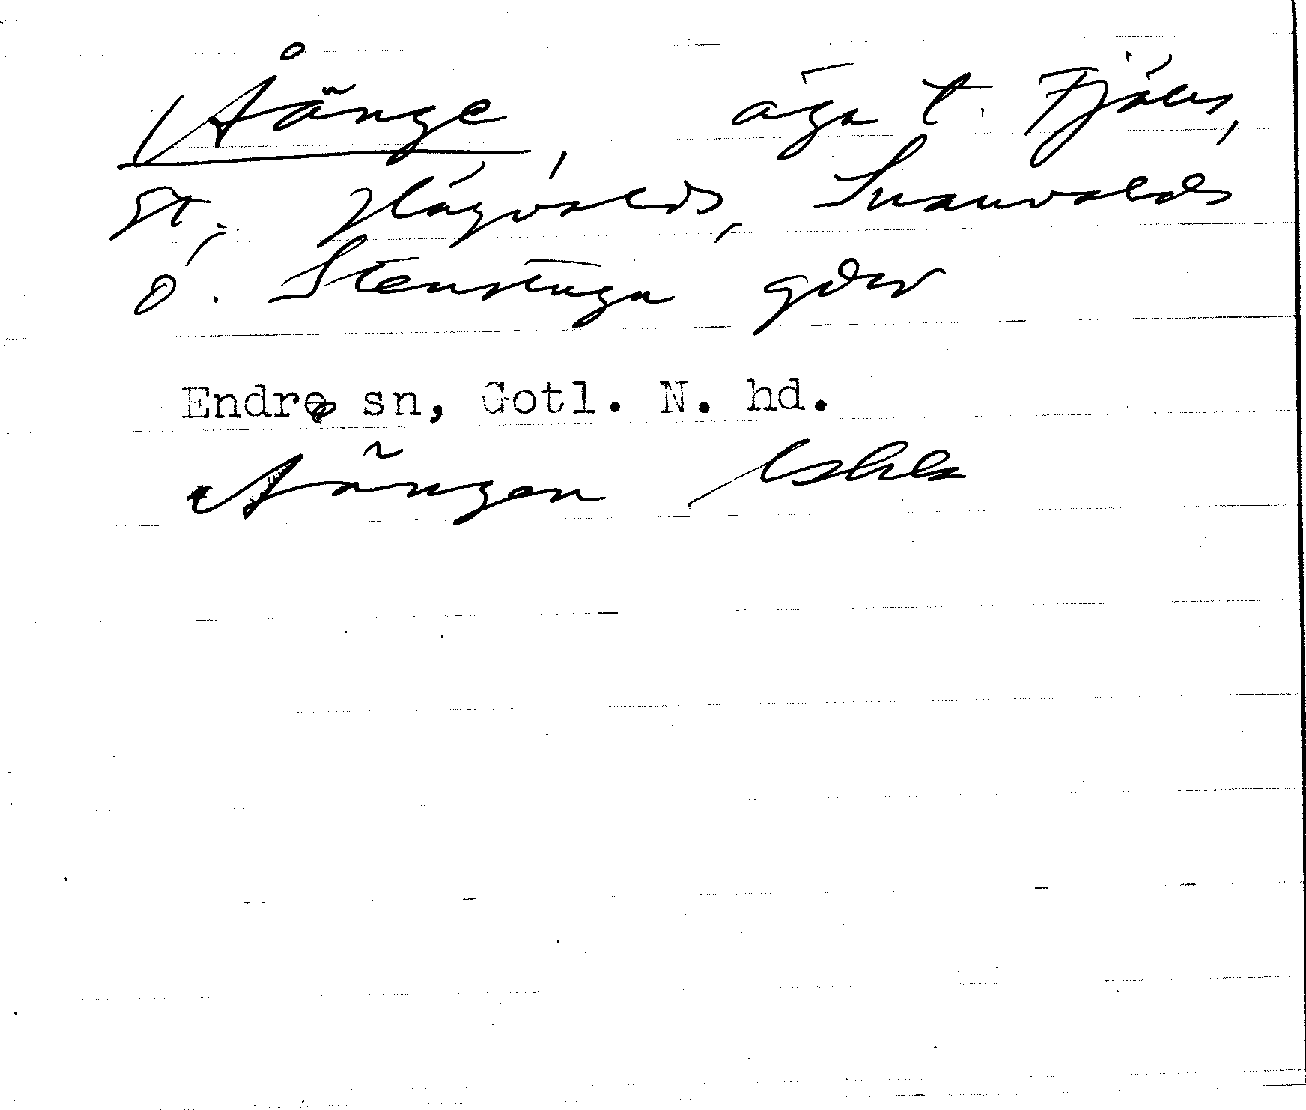 Åänge, äga t. Fjäls,
St. Hägvalds, Snauvalds
o. Stenstuga gdar
Endre sn, Gotl. N. hd.
Aängen